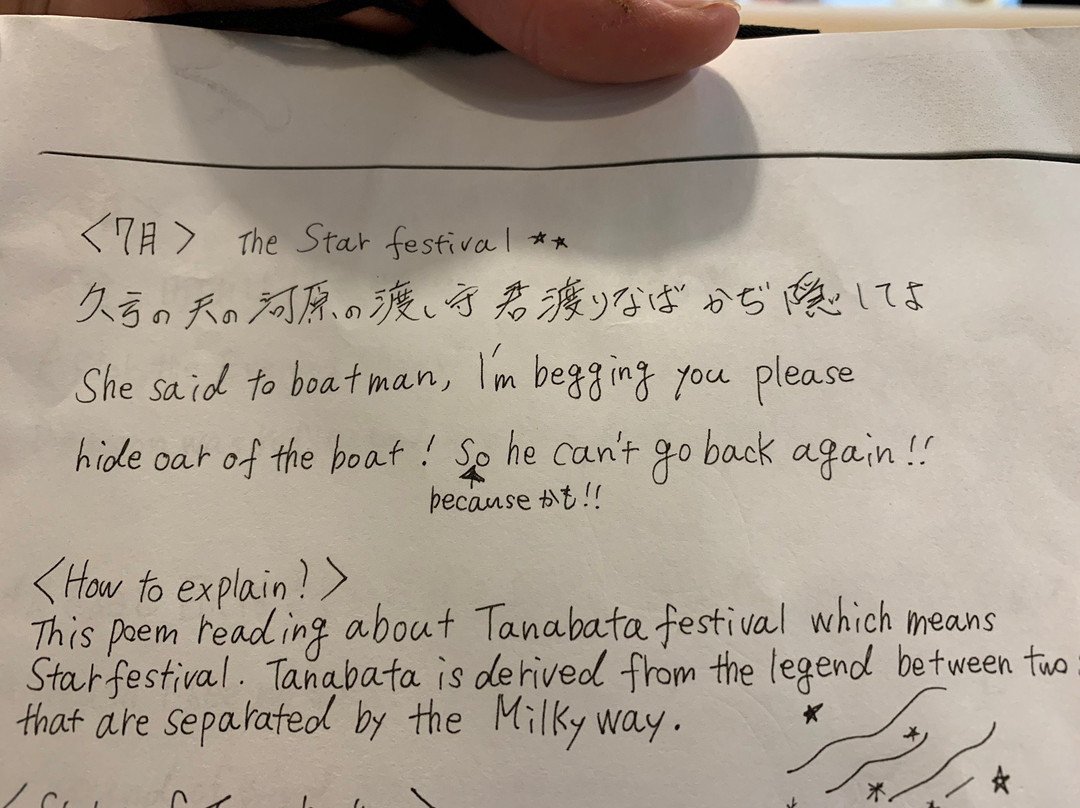 <7月> The Star festival ★★
久方の天の河原の渡し守 君渡りなば かぢ隠してよ
She said to boatman, I'm begging you please
hide oar of the boat! So he can't go back again!!
because かも!!
<How to explain!>
This poem reading about Tanabata festival which means
Star festival. Tanabata is derived from the legend between two
that are separated by the Milky way.